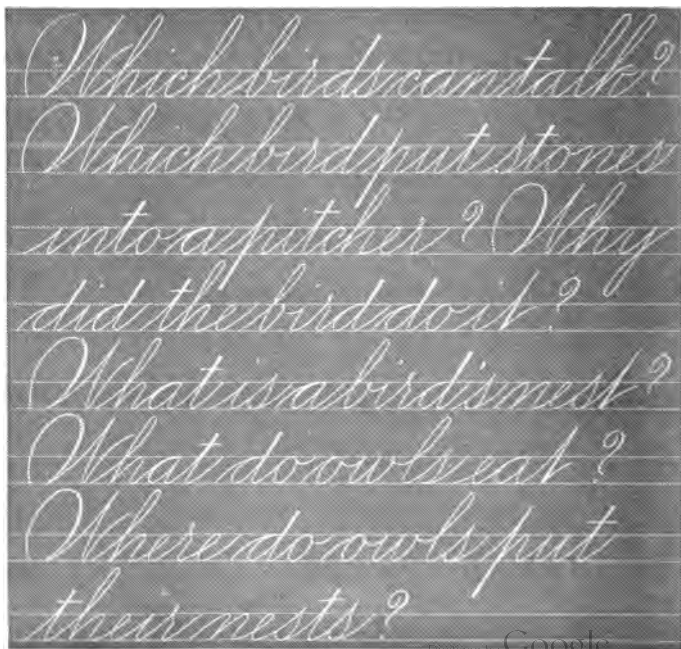 Which birds can talk?
Which bird put stones
into a pitcher? Why
did the bird do it?
What is a bird's nest?
What do owls eat?
Where do owls put
their nests?
Google